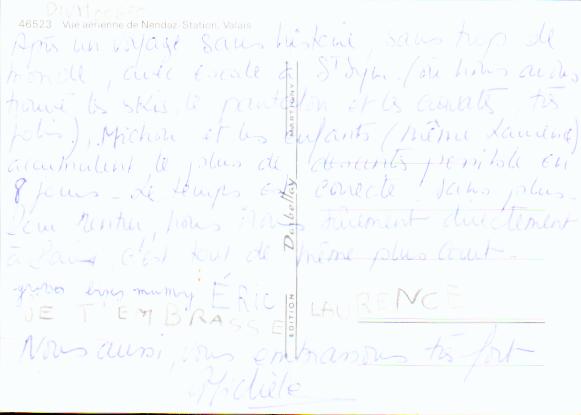 46523 Vue aérienne de Nendaz-Station, Valais
Après un voyage sans histoire, sans trop de
monde, avec escale à St Sym. (où nous avons
trouvé les skis, le pantalon et les très
jolis), Michon et les enfants (même Laurence)
accumulent le plus de descentes possible en
8 jours - Le temps est correcte sans plus -
Pour rentrer, nous irons sûrement directement
à Paris, c'est tout de même plus court -
gros mummy ÉRIC
JE T'EMBRASSE LAURENCE
Nous aussi, vous embrassons très fort
Michèle
EDITION Darbellay MARTIGNY